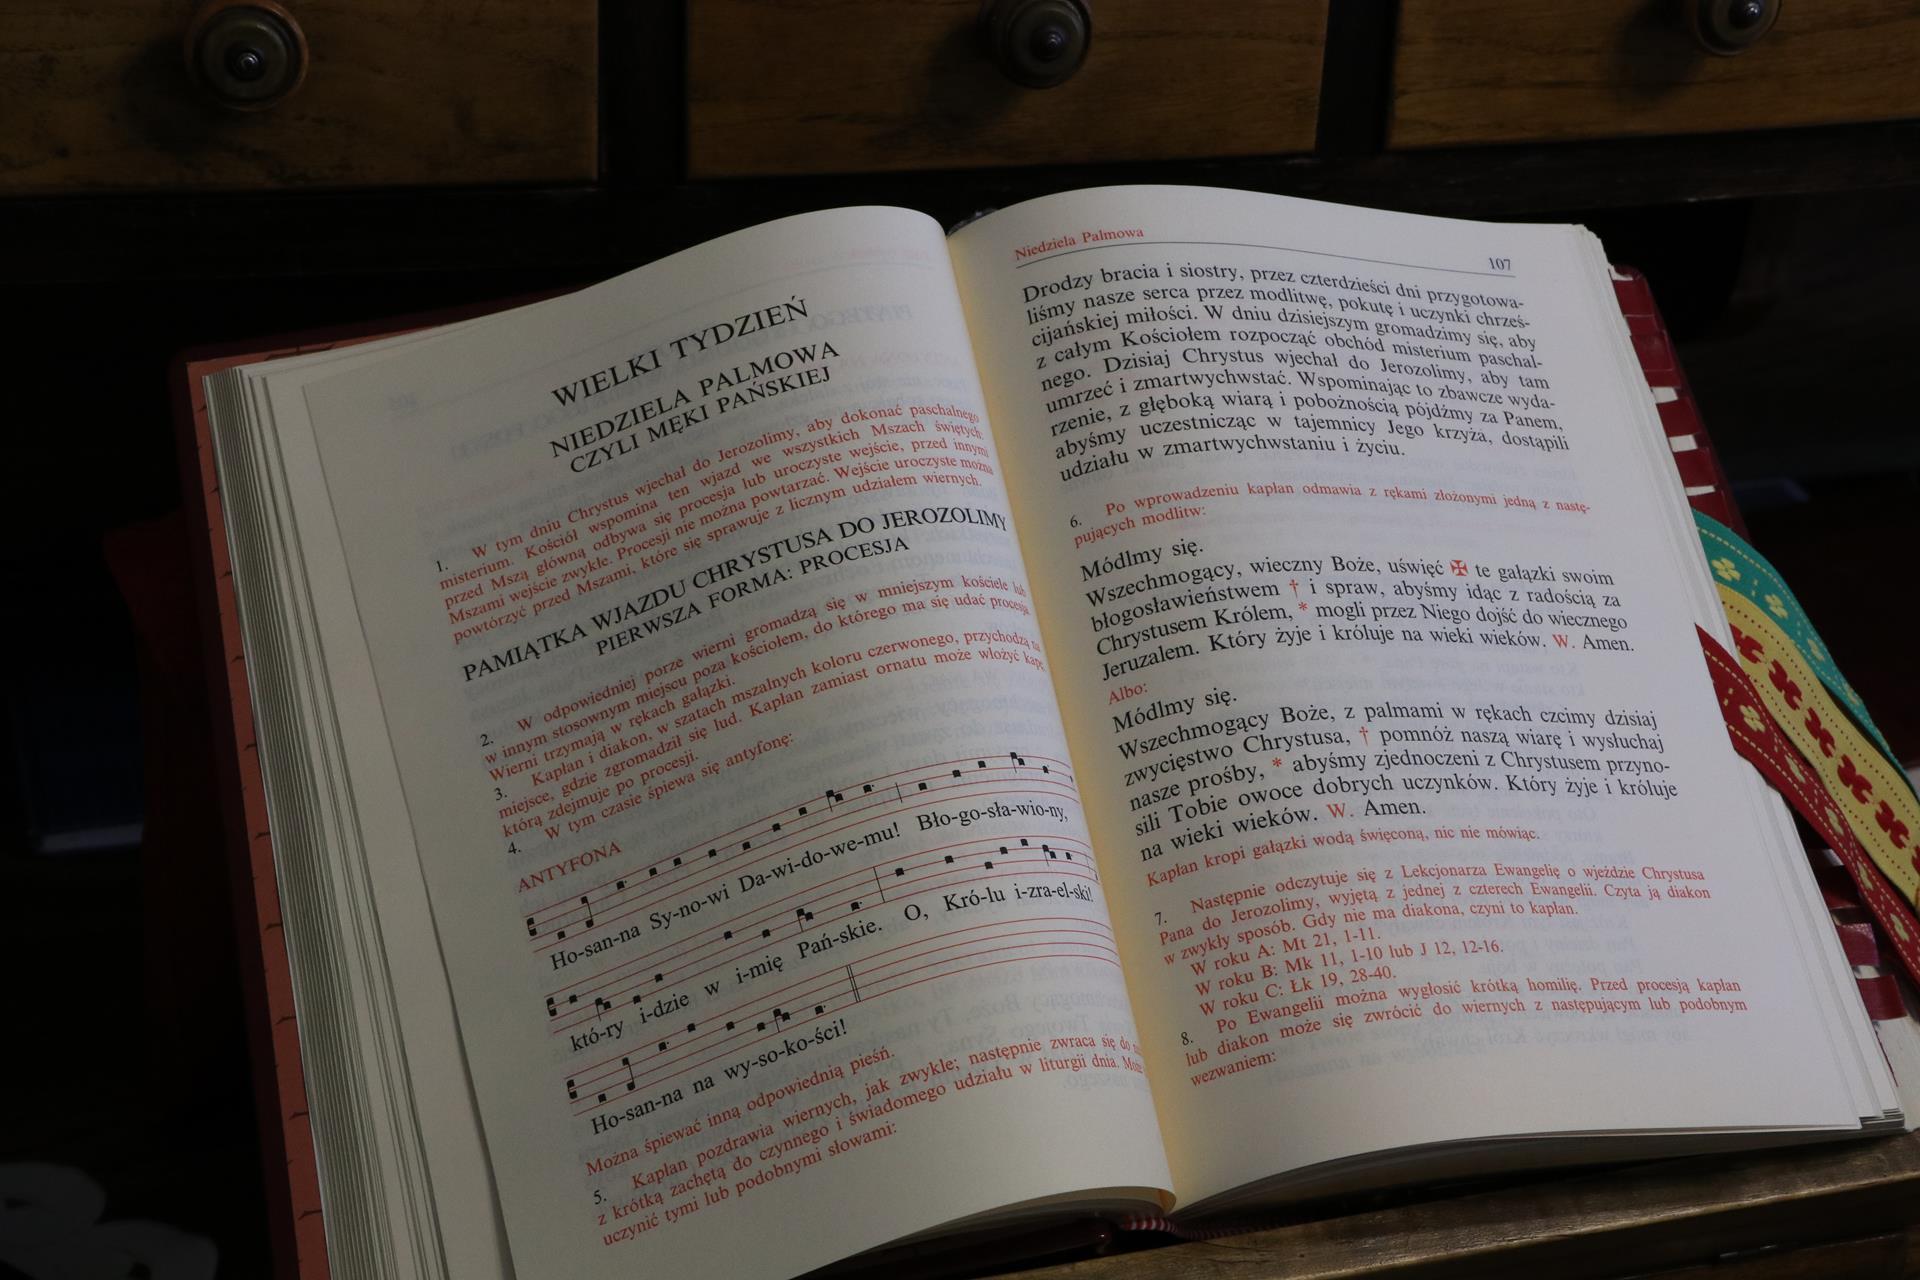 WIELKI TYDZIEŃ
NIEDZIELA PALMOWA
CZYLI MĘKI PAŃSKIEJ
1. W tym dniu Chrystus wjechał do Jerozolimy, aby dokonać paschalnego
misterium. Kościół wspomina ten wjazd we wszystkich Mszach świętych:
przed Mszą główną odbywa się procesja lub uroczyste wejście, przed innymi
Mszami wejście zwykłe. Procesji nie można powtarzać. Wejście uroczyste można
powtórzyć przed Mszami, które się sprawuje z licznym udziałem wiernych.
PAMIĄTKA WJAZDU CHRYSTUSA DO JEROZOLIMY
PIERWSZA FORMA: PROCESJA
2. W odpowiedniej porze wierni gromadzą się w mniejszym kościele lub
w innym stosownym miejscu poza kościołem, do którego ma się udać procesja.
Wierni trzymają w rękach gałązki.
3. Kapłan i diakon, w szatach mszalnych koloru czerwonego, przychodzą na
miejsce, gdzie zgromadził się lud. Kapłan zamiast ornatu może włożyć kapę,
którą zdejmuje po procesji.
4. W tym czasie śpiewa się antyfonę:
ANTYFONA
Ho-san-na Sy-no-wi Da-wi-do-we-mu! Bło-go-sła-wio-ny,
któ-ry i-dzie w i-mię Pań-skie. O, Kró-lu i-zra-el-ski!
Ho-san-na na wy-so-ko-ści!
Można śpiewać inną odpowiednią pieśń.
5. Kapłan pozdrawia wiernych, jak zwykle; następnie zwraca się do
z krótką zachętą do czynnego i świadomego udziału w liturgii dnia. Może
uczynić tymi lub podobnymi słowami:
Niedziela Palmowa 107
Drodzy bracia i siostry, przez czterdzieści dni przygotowa-
liśmy nasze serca przez modlitwę, pokutę i uczynki chrześ-
cijańskiej miłości. W dniu dzisiejszym gromadzimy się, aby
z całym Kościołem rozpocząć obchód misterium paschal-
nego. Dzisiaj Chrystus wjechał do Jerozolimy, aby tam
umrzeć i zmartwychwstać. Wspominając to zbawcze wyda-
rzenie, z głęboką wiarą i pobożnością pójdźmy za Panem,
abyśmy uczestnicząc w tajemnicy Jego krzyża, dostąpili
udziału w zmartwychwstaniu i życiu.
6. Po wprowadzeniu kapłan odmawia z rękami złożonymi jedną z nastę-
pujących modlitw:
Módlmy się.
Wszechmogący, wieczny Boże, uświęć ✠ te gałązki swoim
błogosławieństwem † i spraw, abyśmy idąc z radością za
Chrystusem Królem, * mogli przez Niego dojść do wiecznego
Jeruzalem. Który żyje i króluje na wieki wieków. W. Amen.
Albo:
Módlmy się.
Wszechmogący Boże, z palmami w rękach czcimy dzisiaj
zwycięstwo Chrystusa, † pomnóż naszą wiarę i wysłuchaj
nasze prośby, * abyśmy zjednoczeni z Chrystusem przyno-
sili Tobie owoce dobrych uczynków. Który żyje i króluje
na wieki wieków. W. Amen.
Kapłan kropi gałązki wodą święconą, nic nie mówiąc.
7. Następnie odczytuje się z Lekcjonarza Ewangelię o wjeździe Chrystusa
Pana do Jerozolimy, wyjętą z jednej z czterech Ewangelii. Czyta ją diakon
w zwykły sposób. Gdy nie ma diakona, czyni to kapłan.
W roku A: Mt 21, 1-11.
W roku B: Mk 11, 1-10 lub J 12, 12-16.
W roku C: Łk 19, 28-40.
8. Po Ewangelii można wygłosić krótką homilię. Przed procesją kapłan
lub diakon może się zwrócić do wiernych z następującym lub podobnym
wezwaniem: